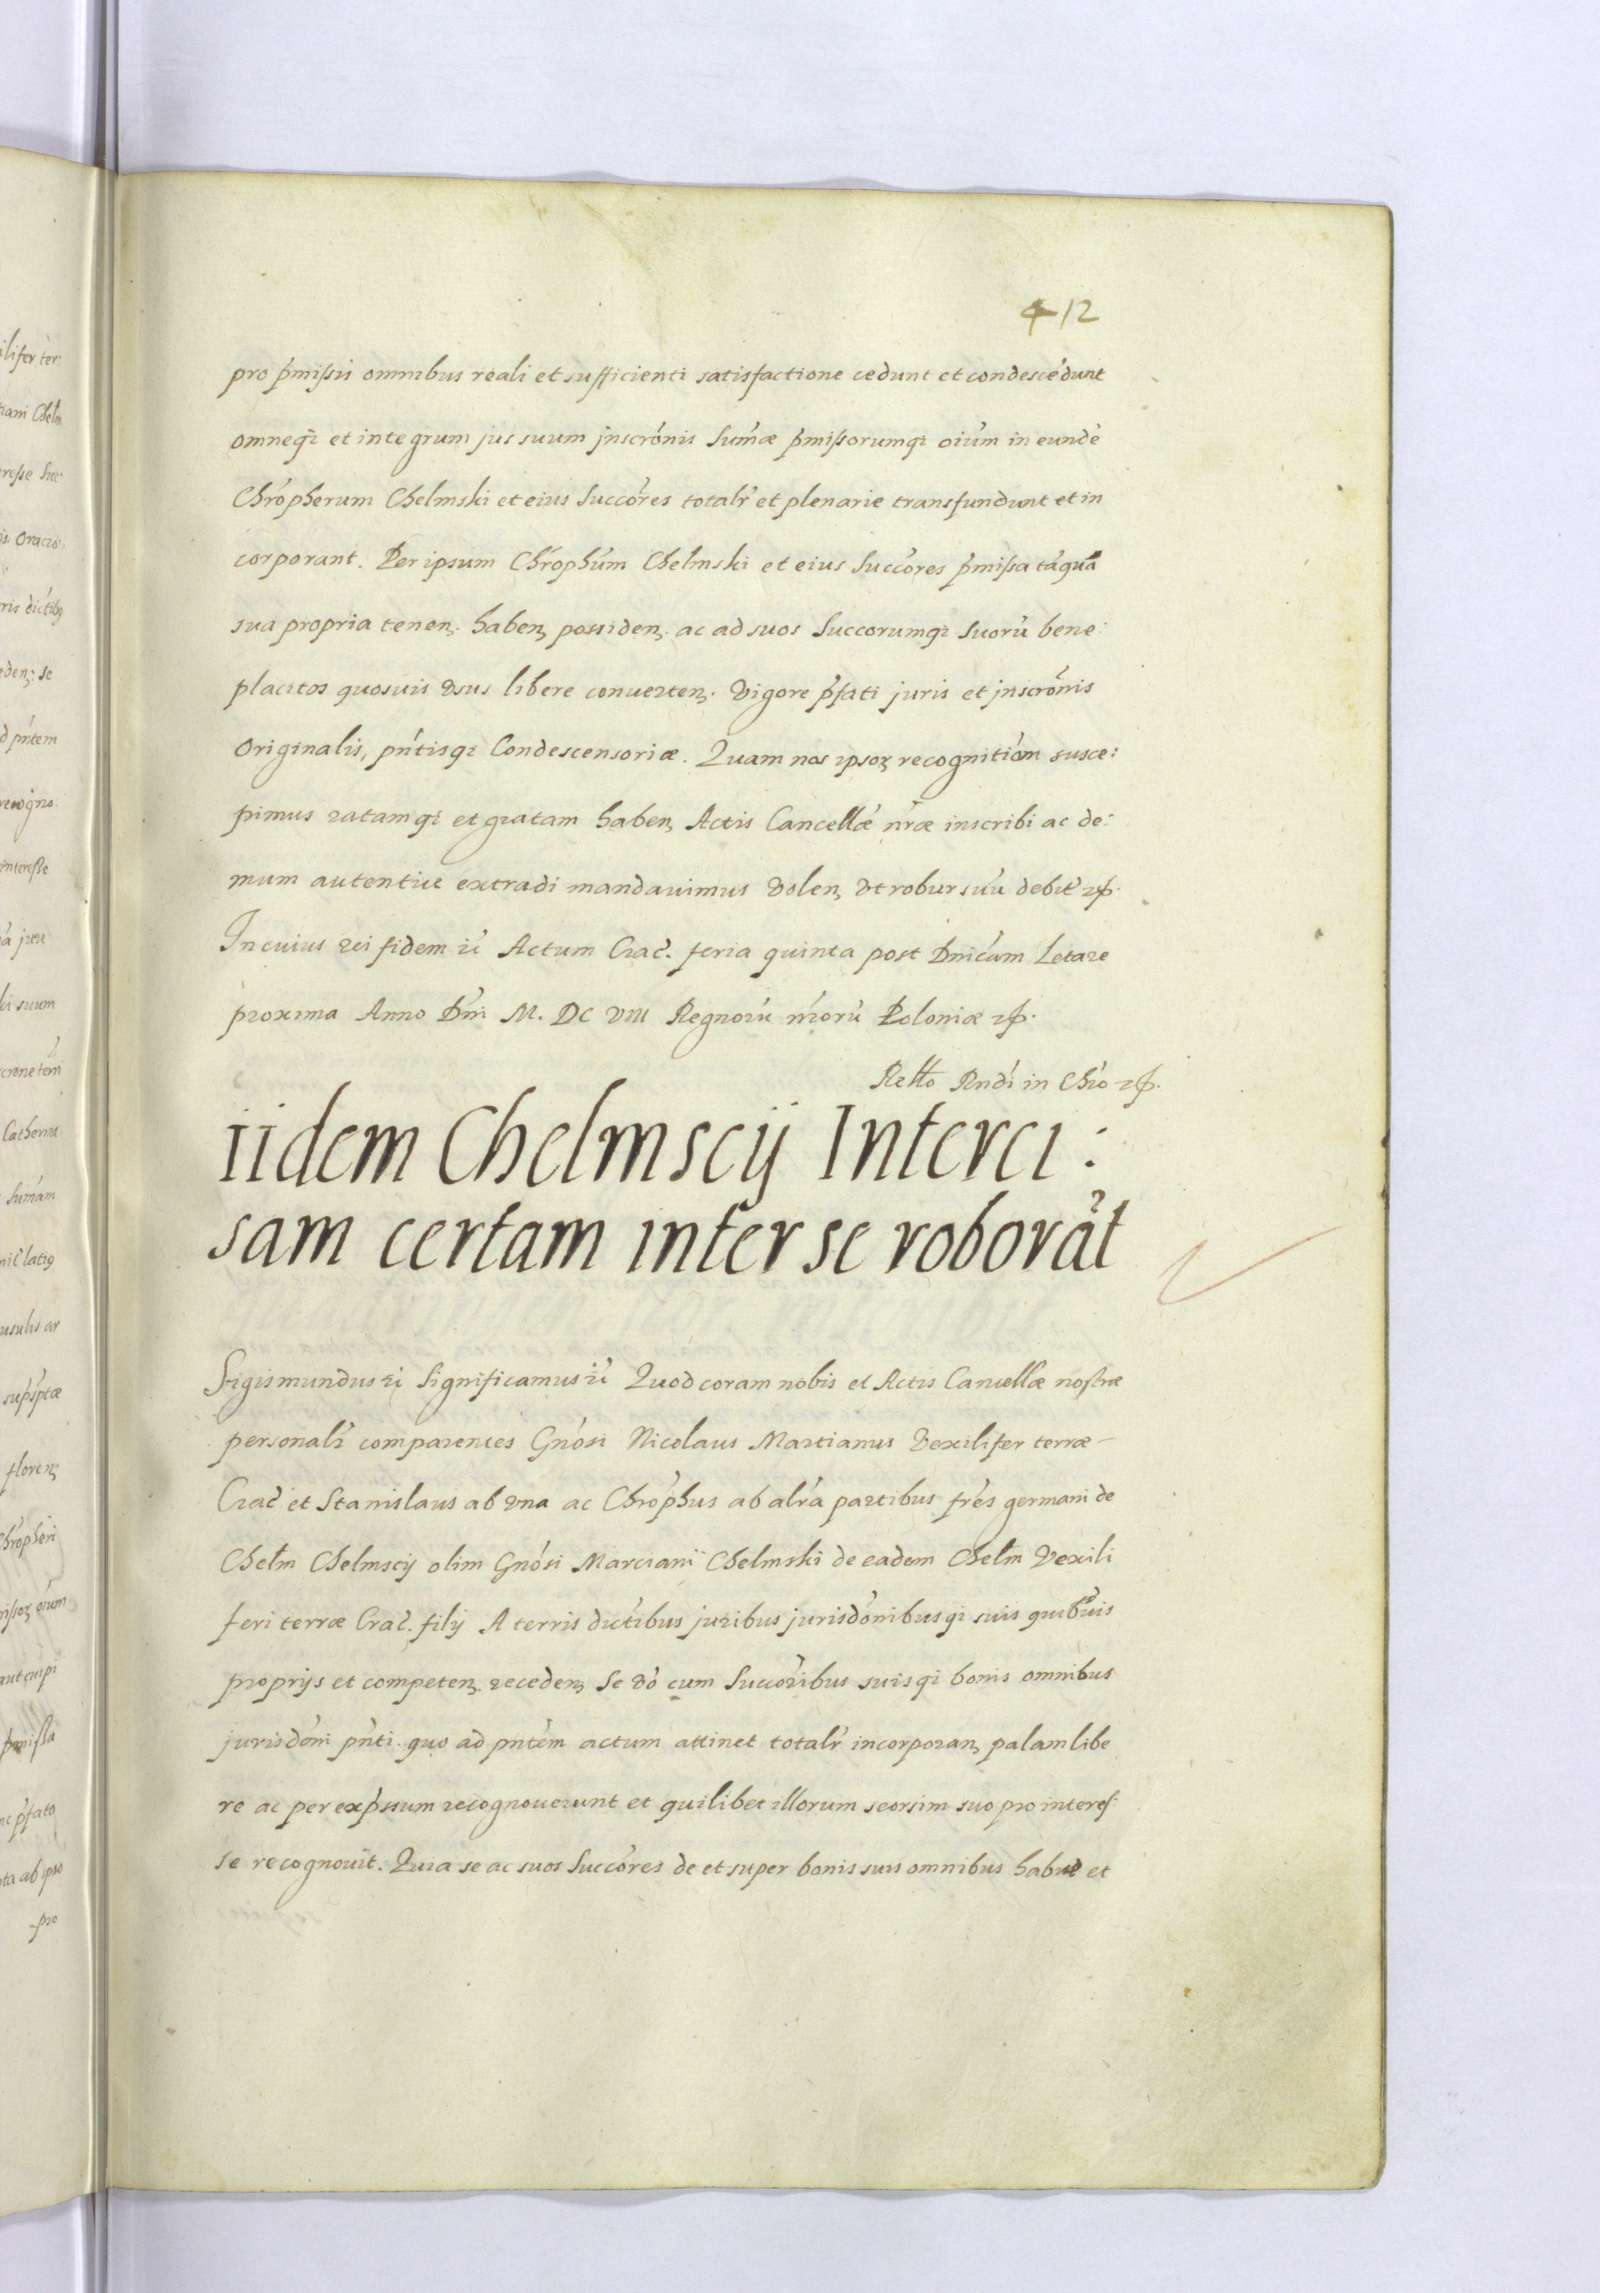 412
pro pṁissis omnibus reali et sufficienti satisfactione cedunt et condescédunt
omneq₃ et integrum jus suum jnscrónis Sumæ pṁissorumq₃ oium in eundē
Chrópherum Chelmski et eius Succóres totalr̄ et plenarie transfundunt et in
corporant. Per ipsum Chróphúm Chelmski et eius Succóres pṁissa táquā
sua propria tenen. haben₃ possiden. ac ad suos Succorumq₃ Suorū bene:
placitos quosuis vsus libere conuerten₃. Vigore pŕfati juris et jnscrónis
Originalis, pńtisq₃ Condescensoriæ. Quam nos ipsoꝝ recognitióm susce:
pimus ratamq₃ et gratam haben₃ Actis Cancellæ nr̄æ inscribi ac de:
mum autentice extradi mandauimus Volen₃ vt robur suū debit̄ ꝛꝓ.
In cuius rei fidem ꝛc̄ Actum Crac̄. feria quinta post Dnicám Letare
proxima Anno Dńi M. DC VIII Regnorū nŕorū Poloniæ ꝛꝓ.
Retto Rndi in Chro ꝛꝓ.
iidem Chelmscij Interci:
sam certam inter se roborāt
Sigismundus ꝛc̄ Significamus ꝛc̄ Quod coram nobis et Actis Cancellæ nostræ
personalr̄ comparentes Gnósi Nicolaus Martianus Vexilifer terræ
Crac̄ et Stanislaus ab vna ac Chróphus ab alrá partibus fres germani de
Chełm Chelmscij olim Gnósi Marcianï Chelmski de eadem Chełm Vexili
feri terræ Crac̄. filij A terris dictibus juribus jurisdónibusq₃ suis quibuis
proprijs et competen₃ receden₃ Se vó cum Succoribus suisq₃ bonis omnibus
jurisdóni pńti. quo ad pntém actum attinet totalr̄ incorporan₃ palam libe
re ac per expssum recognouerunt et quilibet illorum seorsim suo pro interes:
se recognouit. Quia se ac suos Succóres de et super bonis suis omnibus habit̄ et